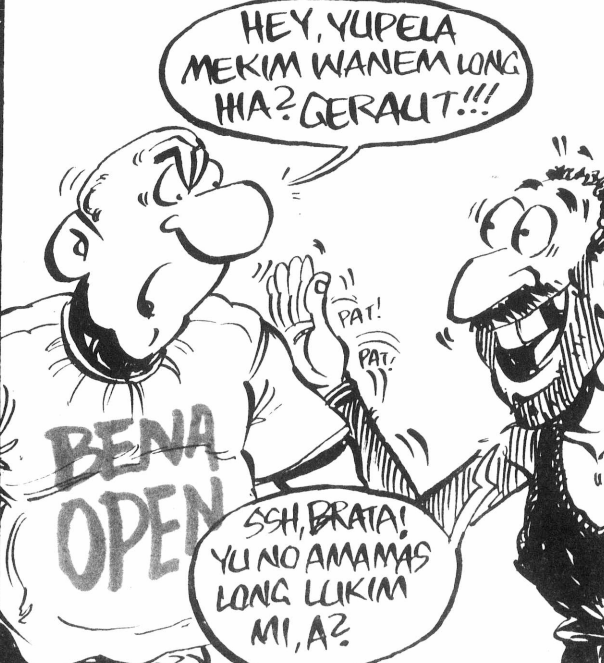 HEY, YUPELA
MEKIM WANEM LONG
HIA? GERAUT!!!
PAT!
PAT!
BENA
OPEN
SSH, BRATA!
YU NO AMAMAS
LONG LUKIM
MI, A?